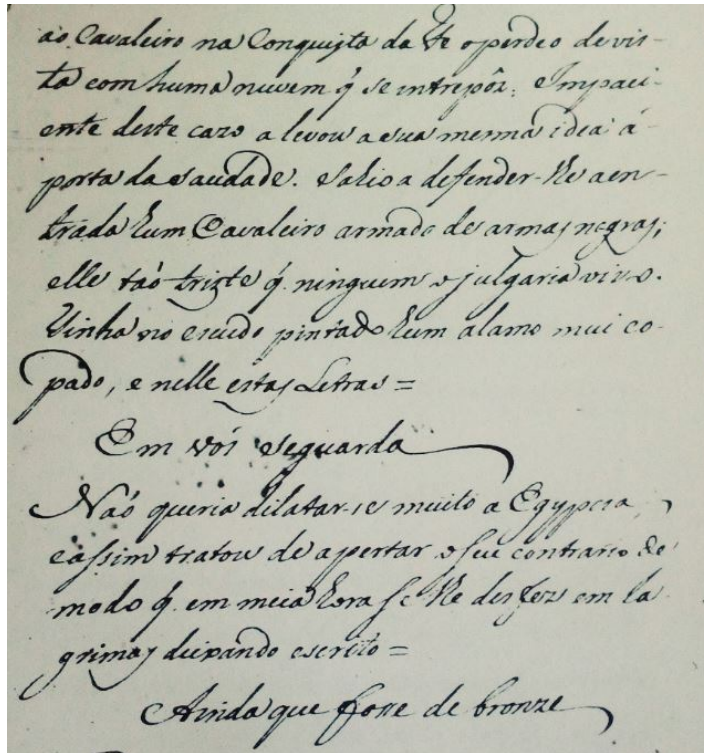 ao Cavaleiro na Conquista da Fe o perdeo de vis-
ta com huma nuvem q̃ se intrepôz; e Impaci-
ente deste cazo a levou a sua mesma idea á
porta da saudade. Sahio a defender-lhe a en-
trada hum Cavaleiro armado de armas negras;
elle taõ trizte q̃ ninguem o julgaria vivo.
Vinha no escudo pintado hum alamo mui co-
pado, e nelle estas Letras =
Em vós se guarda
Naõ queria dilatar-se muito a Egypcia,
e assim tratou de apertar o seu contrario de
modo q̃ em meia hora se lhe desfez em la-
grimas deixando escrito =
Ainda que fosse de bronze